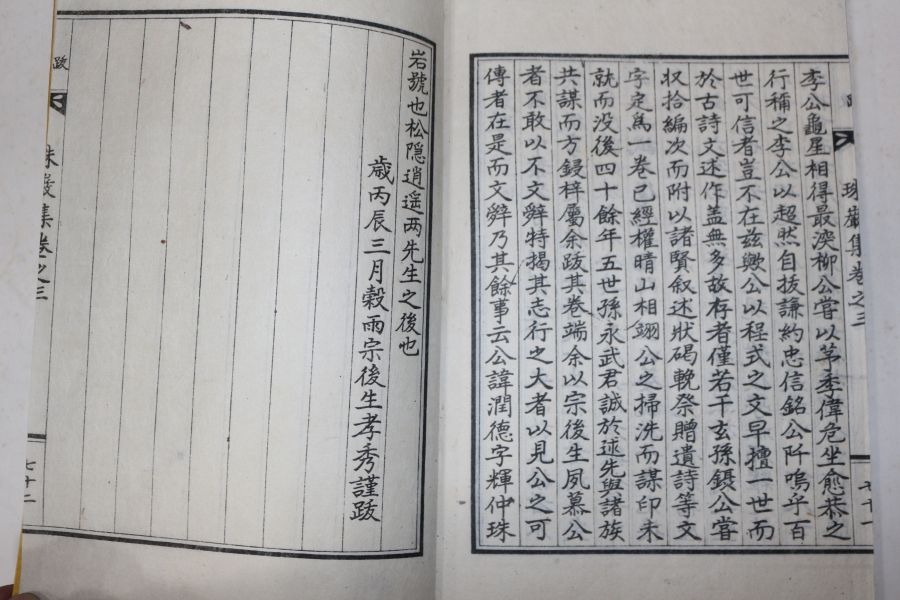 李公龜星相得最深柳公嘗以茅季偉危坐愈恭之
行稱之李公以超然自拔謙約忠信銘公阡嗚乎百
世可信者豈不在玆歟公以程式之文早擅一世而
於古詩文述作盖無多故存者僅若干玄孫鎰公嘗
収拾編次而附以諸賢叙述狀碣輓祭贈遺詩等文
字定爲一卷已經權晴山相翊公之掃洗而謀印未
就而没後四十餘年五世孫永武君誠於述先與諸族
共謀而方鋟梓屬余跋其卷端余以宗後生夙慕公
者不敢以不文辤特揭其志行之大者以見公之可
傳者在是而文辤乃其餘事云公諱潤德字輝仲珠
珠巖集卷之三
七十一
岩號也松隠逍遥两先生之後也
歲丙辰三月糓雨宗後生孝秀謹跋
跋
珠巖集卷之三
七十二